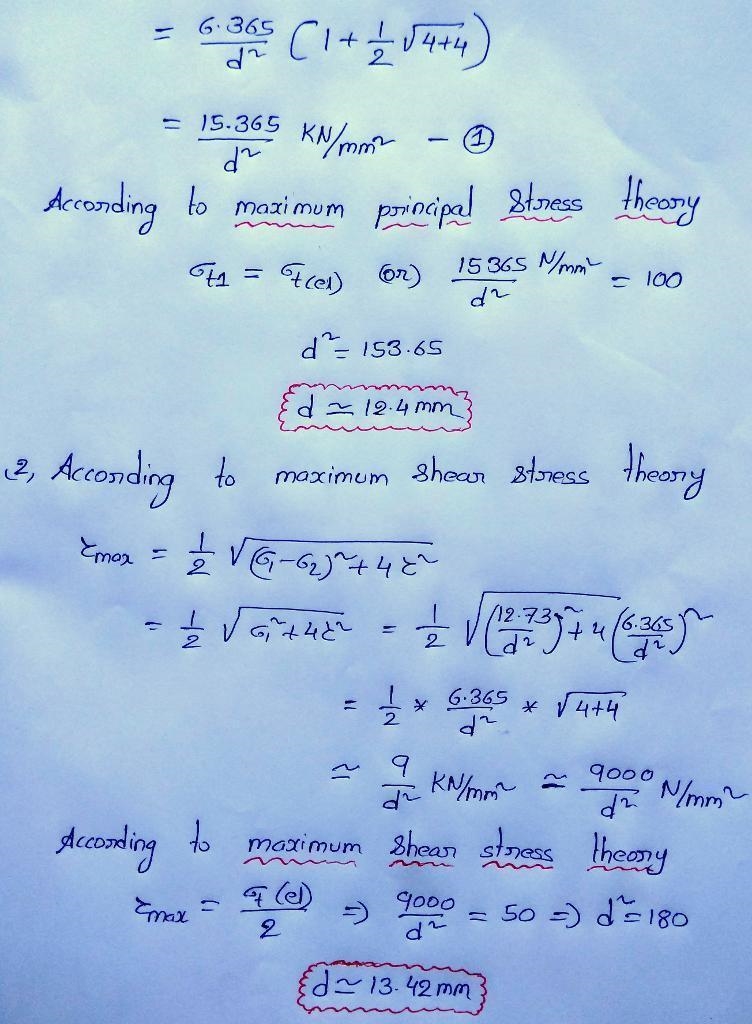 = 6.365/d² (1 + 1/2 √4+4)
= 15.365/d² KN/mm² - ①
According to maximum principal stress theory
σt1 = σt(el) (or) 15365/d² N/mm² = 100
d² = 153.65
d ≃ 12.4 mm
2, According to maximum shear stress theory
τmax = 1/2 √(σ1-σ2)² + 4τ²
= 1/2 √σ1² + 4τ² = 1/2 √(12.73/d²)² + 4(6.365/d²)²
= 1/2 * 6.365/d² * √4+4
≃ 9/d² KN/mm² ≃ 9000/d² N/mm²
According to maximum shear stress theory
τmax = σt(el)/2 => 9000/d² = 50 => d² = 180
d ≃ 13.42 mm